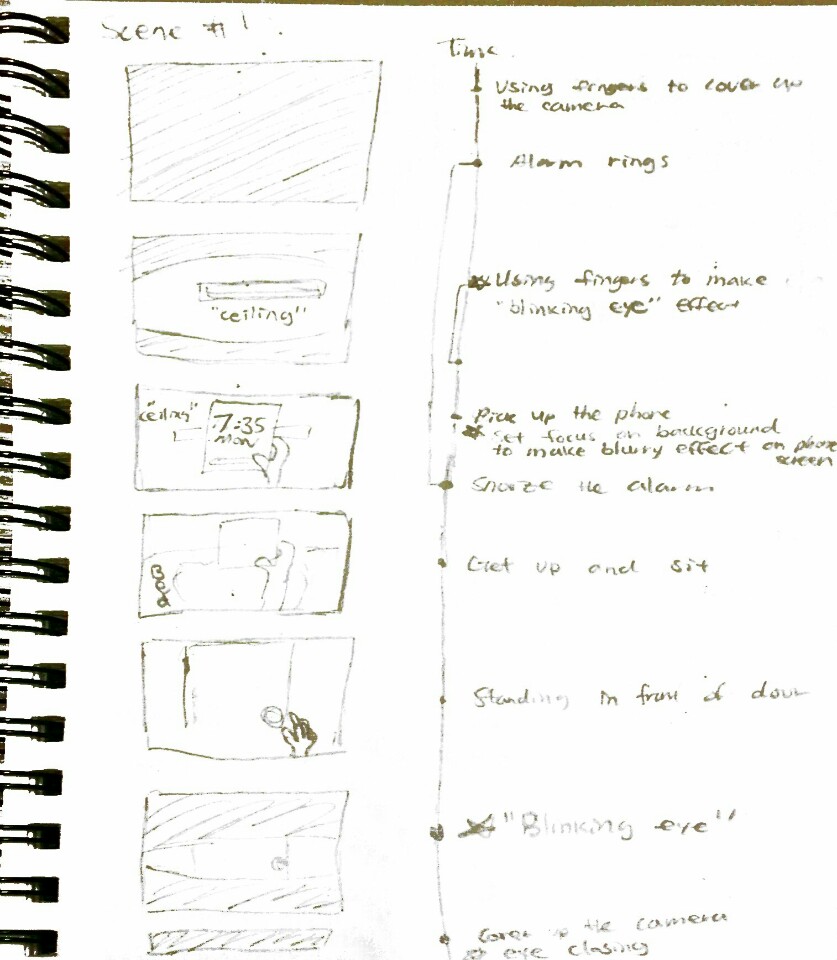 Scene #1.
Time.
Using fingers to cover up
the camera
Alarm rings
Using fingers to make
"blinking eye" effect
"ceiling"
"ceiling"
7:35
Mon
Pick up the phone
Set focus on background
to make blurry effect on phone
screen
Snooze the alarm
Get up and sit
Standing in front of door
"Blinking eye"
Cover up the camera
eye closing